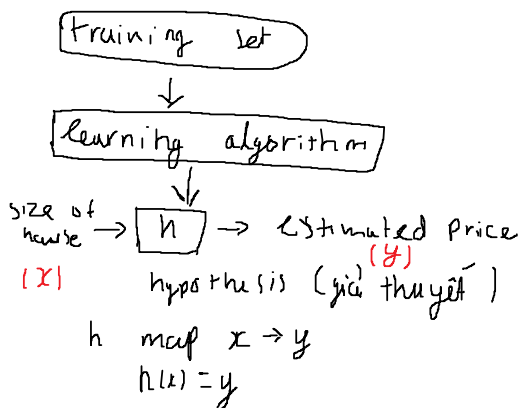 training set
learning algorithm
size of
house → h → estimated price
(x) (y)
hypothesis (giả thuyết)
h map x → y
h(x) = y